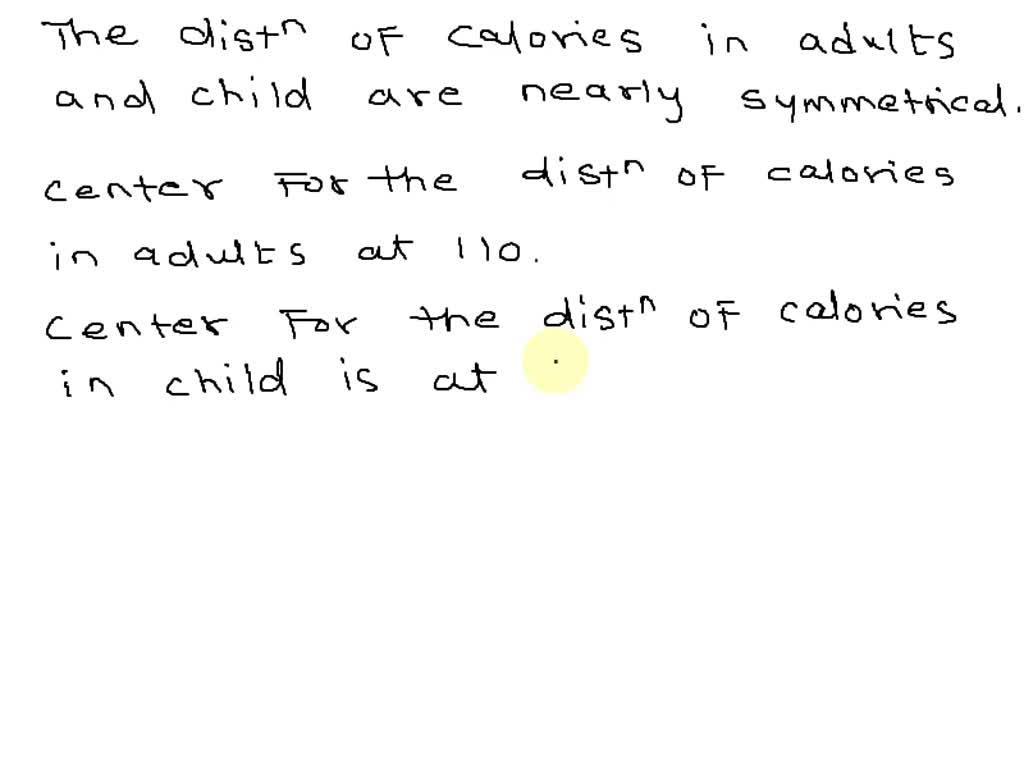 The distⁿ of calories in adults
and child are nearly symmetrical.
center for the distⁿ of calories
in adults at 110.
center for the distⁿ of calories
in child is at